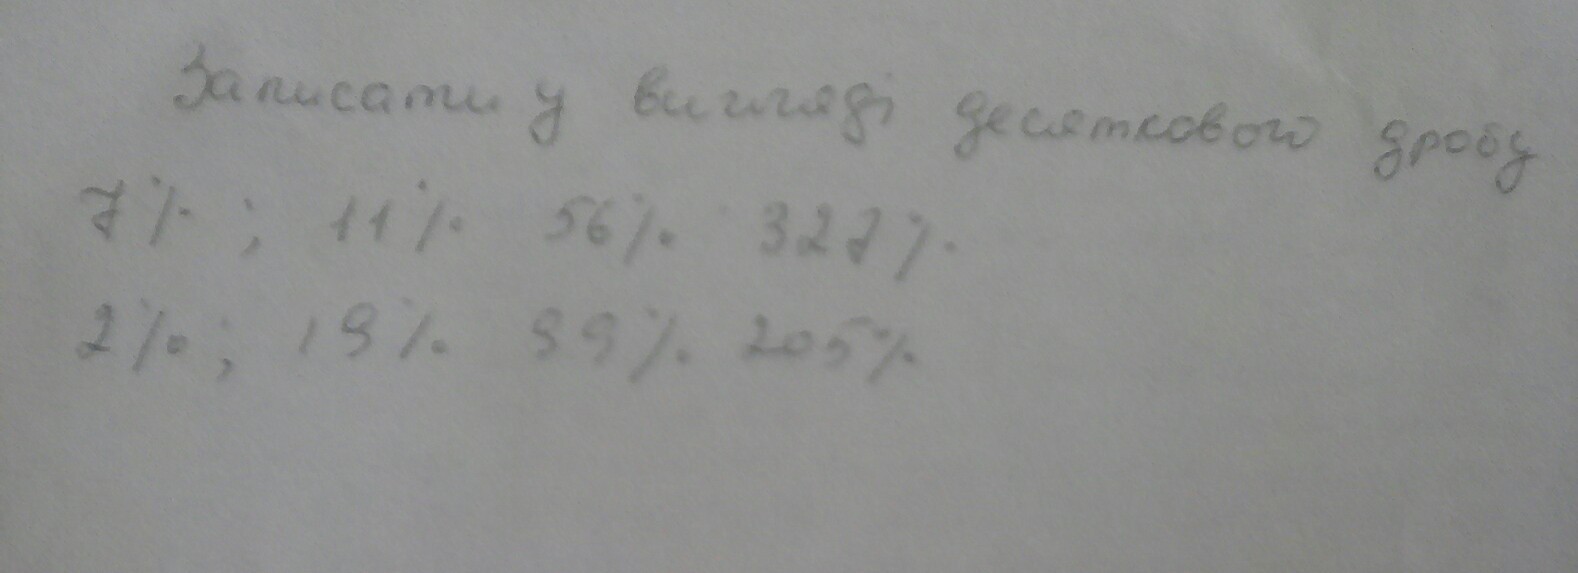 Записати у вигляді десяткового дробу
7% ; 11% 56% 327%
2% ; 19% 99% 205%